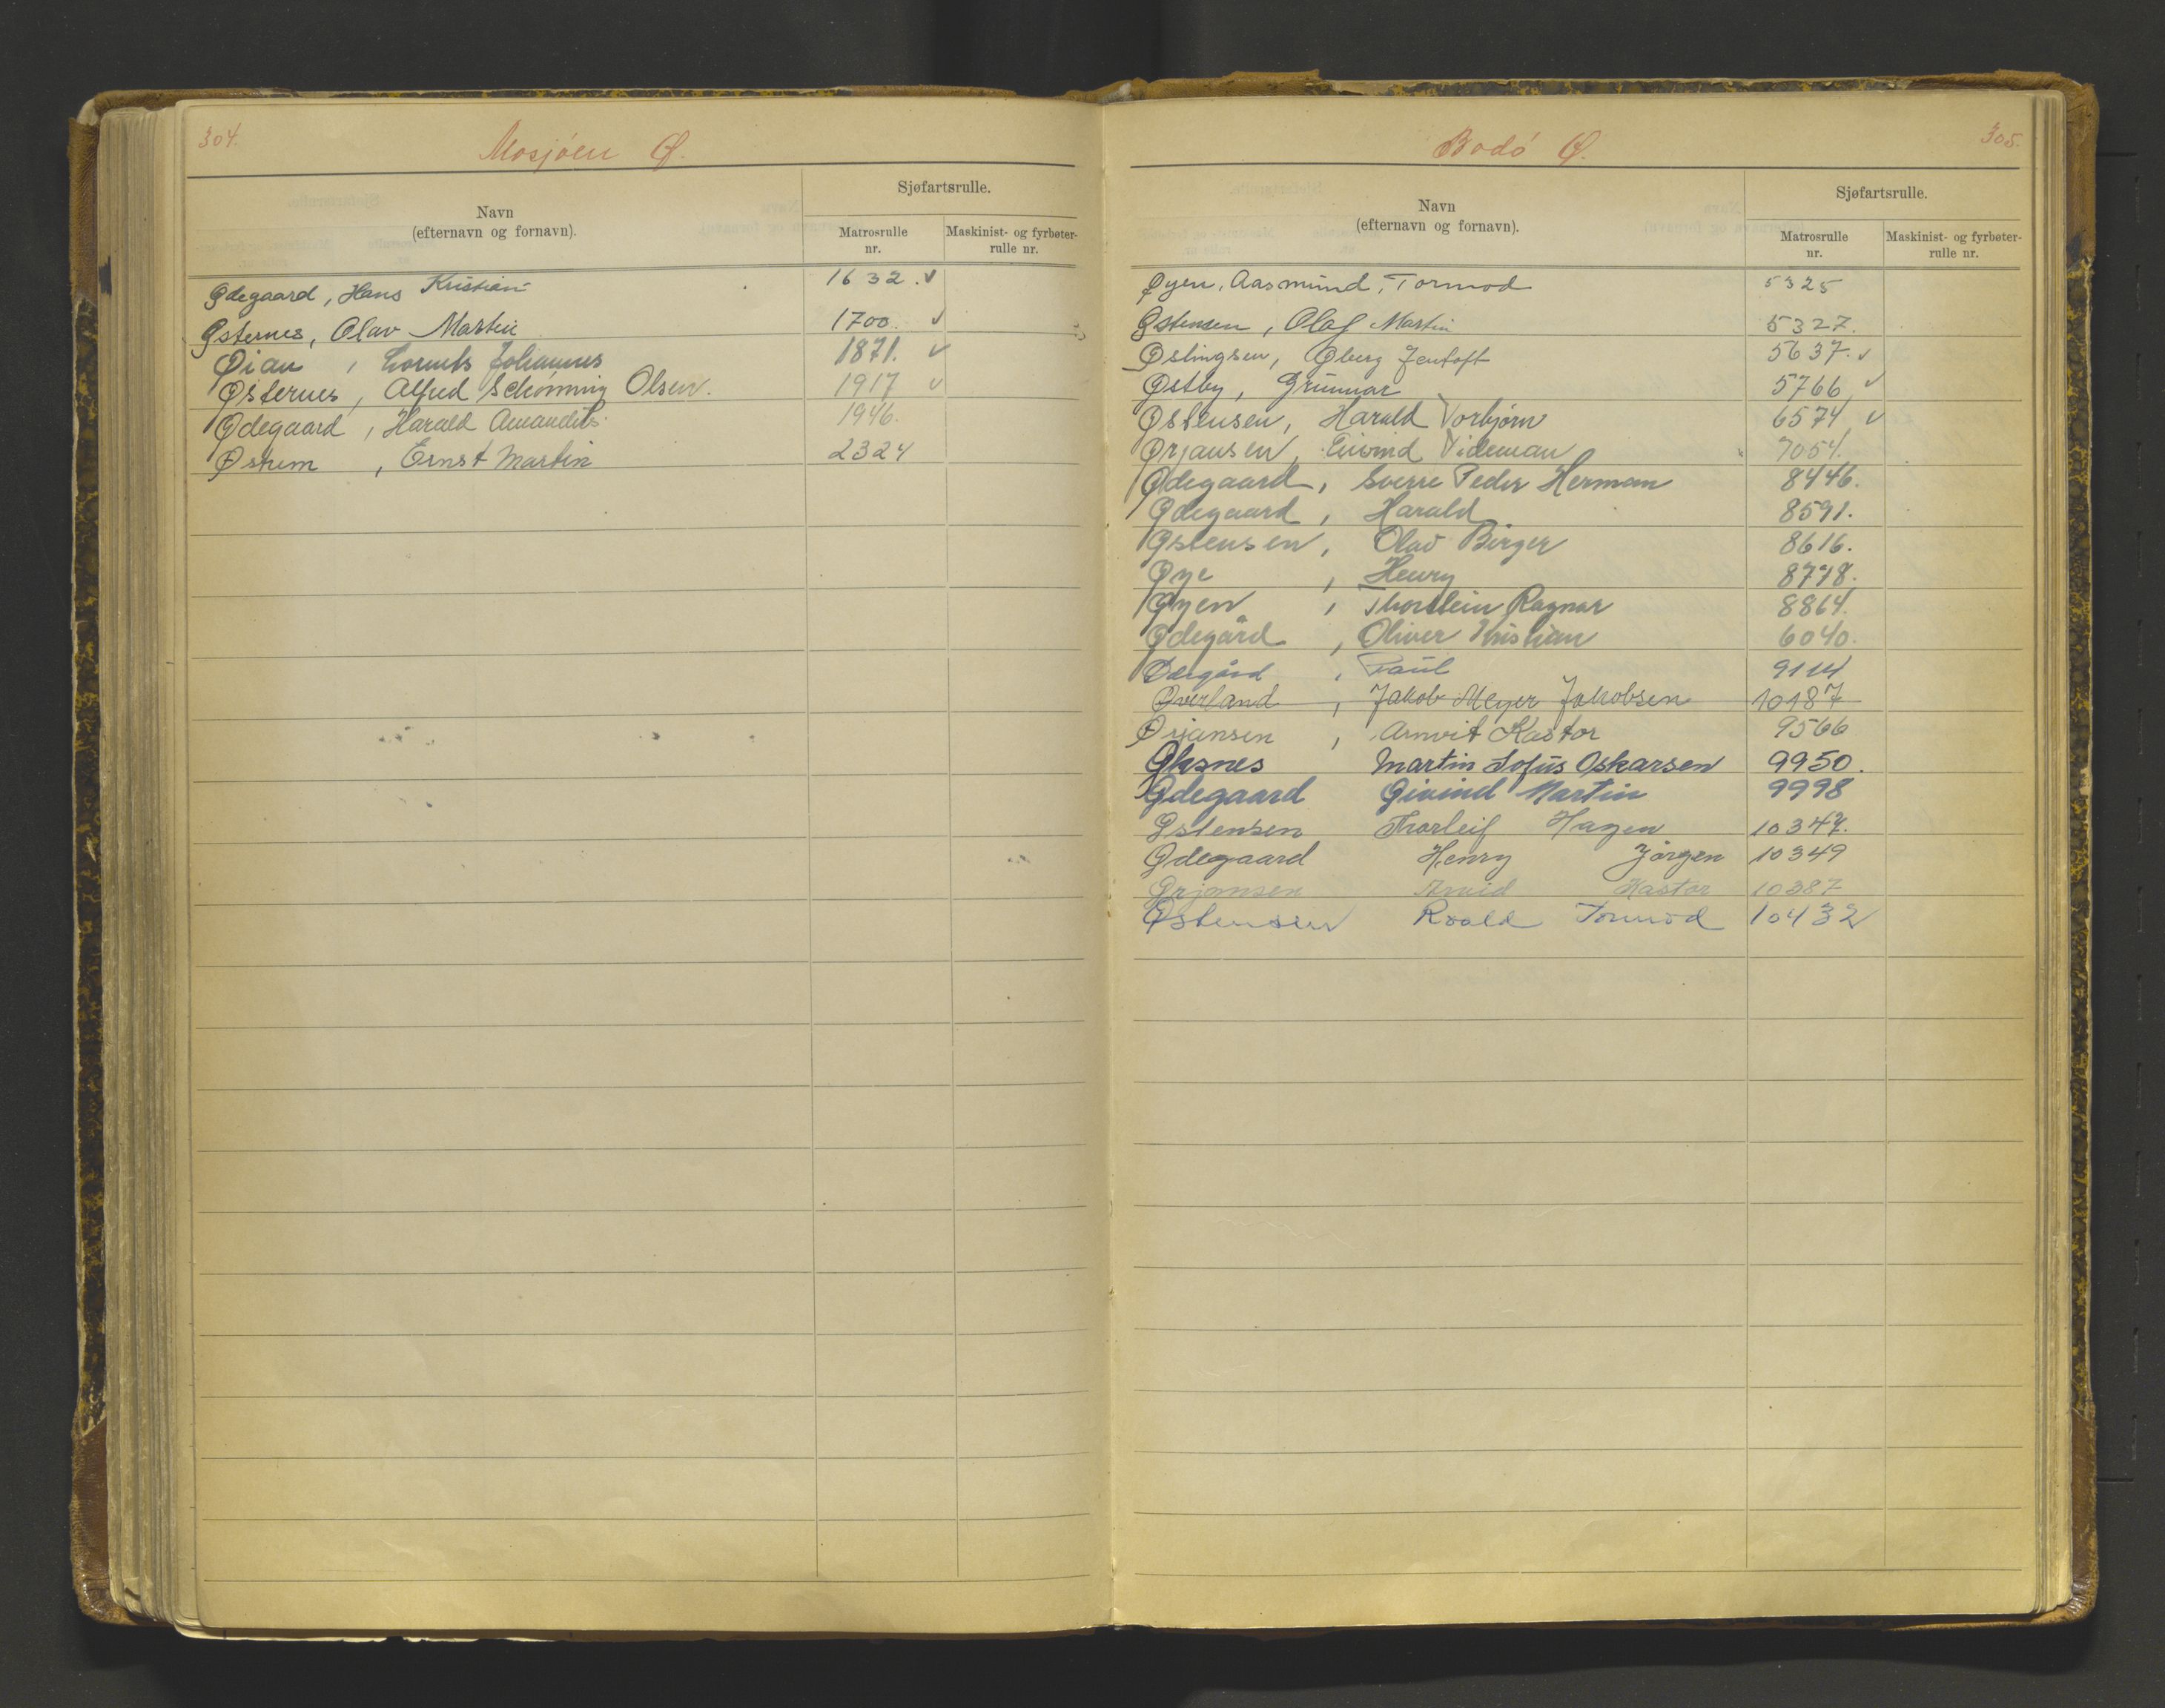 304.
Mosjöen Ø.
Navn
(efternavn og fornavn).
Sjøfartsrulle.
Matrosrulle
nr.
Maskinist- og fyrbøter-
rulle nr.
Ødegaard, Hans Kristian 1632. ✓
Østernes, Olav Martin 1700. ✓
Øian , Cornets Johannes 1871. ✓
Østernes, Alfred Schönning Olsen. 1917 ✓
Ødegaard, Harald 1946.
, Ernst Martin 2324
305.
Bodö Ø.
Navn
(efternavn og fornavn).
Sjøfartsrulle.
Matrosrulle
nr.
Maskinist- og fyrbøter-
rulle nr.
Øyen, Aasmund, Tormod 5325
Østensen, Olaf Martin 5327.
Øslingsen, Øberg Jentoft 5637. ✓
Østby, Gunnar 5766 ✓
Østensen, Harald Torbjørn 6574 ✓
Ørjansen, Eivind Videman 7054.
Ødegaard, Sverre Peder Herman 8446.
Ødegaard, Harald 8591.
Østensen, Olav Birger 8616.
Øye , Henry 8778.
Øyen , Thorstein Ragnar 8864.
Ødegård , Oliver Kristian 6040.
Ødegård , Paul 9114
Øverland , Jakob Meyer Jakobsen 10187
Ørjansen , Arnvit Kastor 9566
Øksnes Martin Sofus Oskarsen 9950.
Ødegaard Øivind Martin 9998
Østensen Thorleif Hagen 10347.
Ødegaard Henry Jörgen 10349
Ørjansen Arvid Kastor 10387
Østensen Roald Tormod 10432